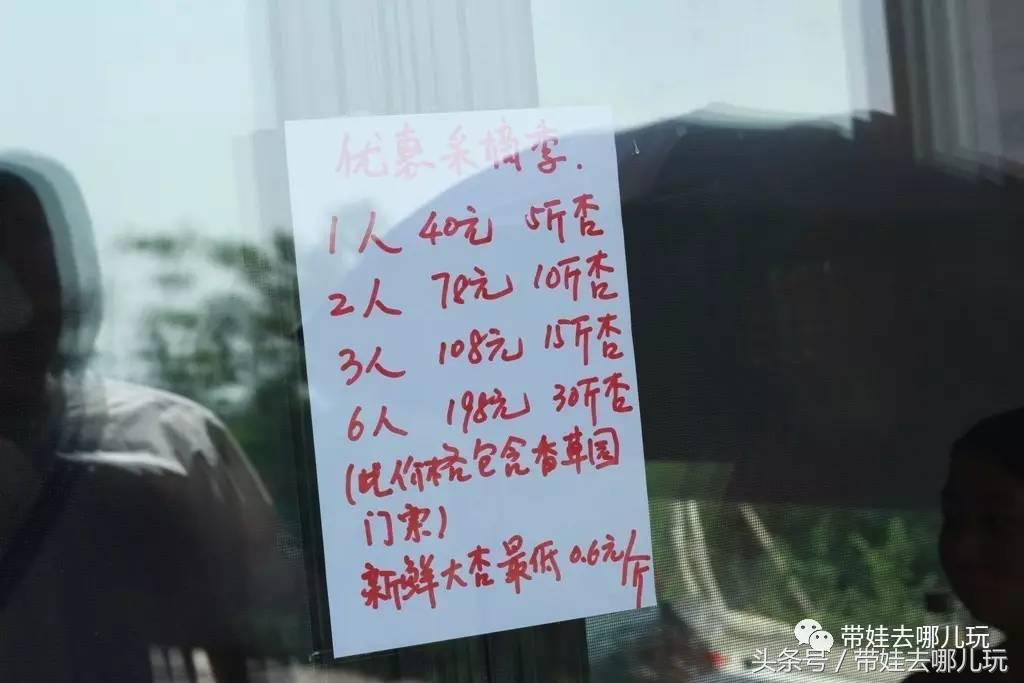 优惠采摘季.
1人 40元 5斤杏
2人 78元 10斤杏
3人 108元 15斤杏
6人 198元 30斤杏
(此价格包含香草园
门票)
新鲜大杏最低0.6元/斤
带娃去哪儿玩
头条号/带娃去哪儿玩